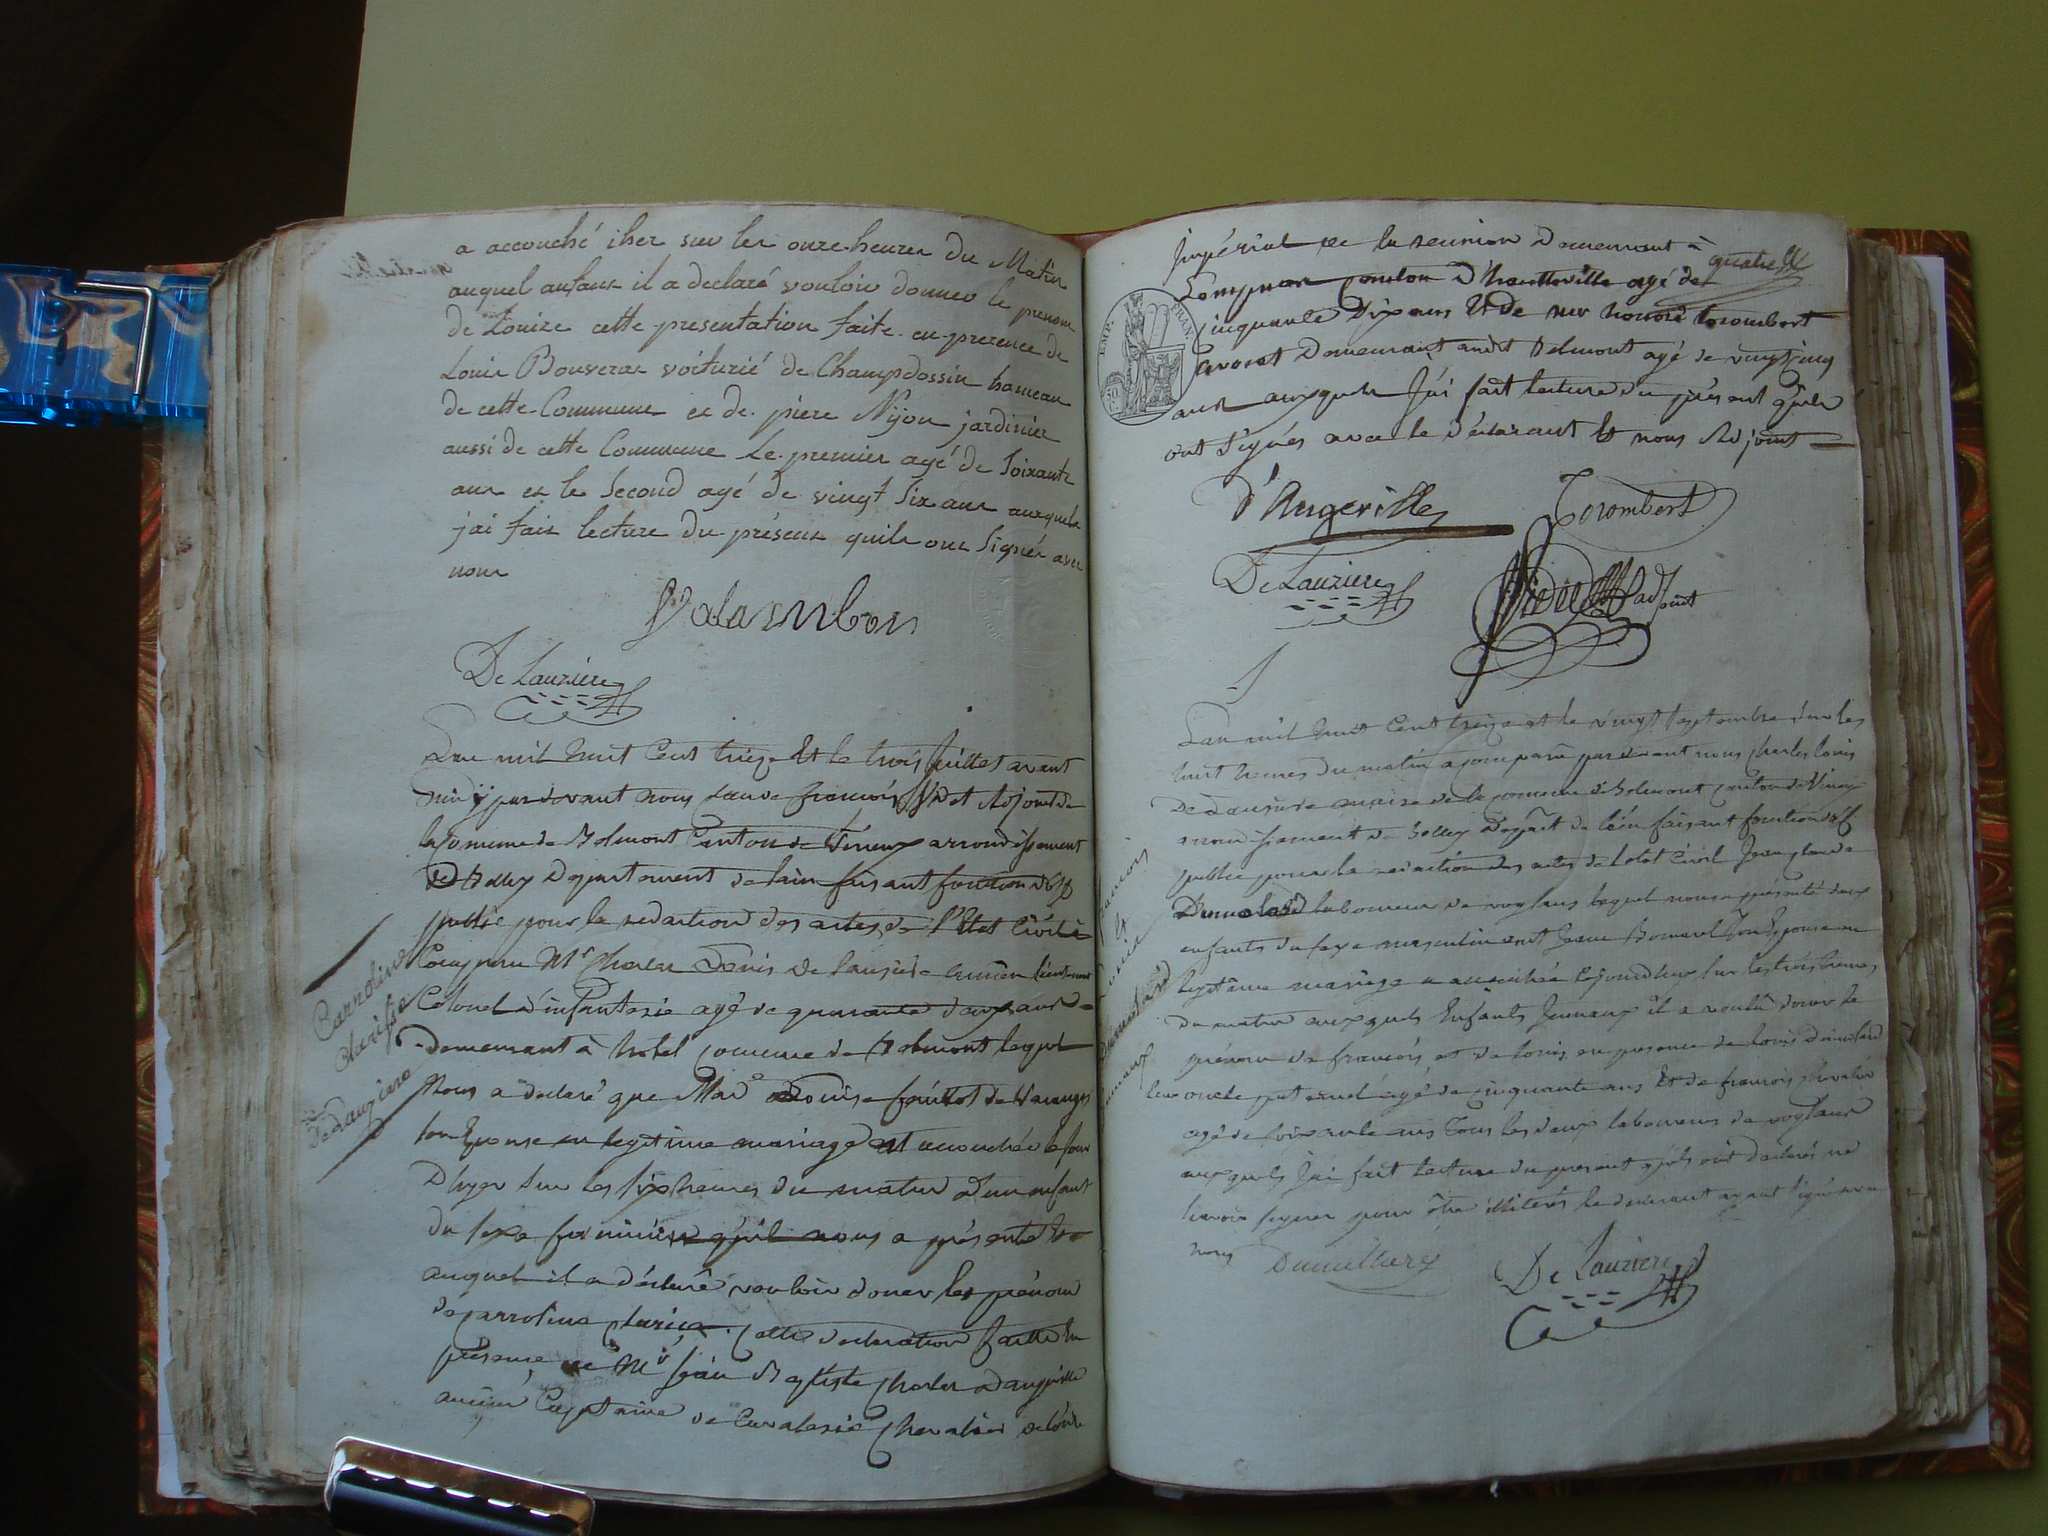 a accouché iher sur les onze heures du Matin
auquel anfant il a declaré vouloir donner le prenom
de Louize cette presentation faite en presence de
Louis Bouveras voiturié de Champdossin hameau
de cette Commune et de piere Nijon jardinier
aussi de cette Commune Le premier agé de Soixante
ans et le Second agé de vingt Six ans auxquels
j'ai fait lecture du présent quils ont Signés avec
nous
Valambon
De Lauziere
L'an mil huit Cent treize Et le trois Juillet avant
midÿ par devant nous Claude françois Adjoint de
la Comune de Belmont Canton de Virieux arrondissement
De Belley Departement de lain faisant fonction d'off
public pour la redaction des actes de l'Etat Civil à
Comparu Mr Charles Denis De Lauziere ancien lieutenant
Colonel d'infanterie agé de quarante deux ans
demeurant à hotel Comune de Belmont lequel
Nous a déclaré que Made Louise de Varanges
son Epouse en legitime mariage est accouchée le jour
D'hyer Sur les six heures du matin d'un enfant
du sexe feminien qu'il nous a présenté Et
auquel il a déclaré vouloir doner les prénom
de Carroline Clarice. Cette déclaration faitte En
présence de Mr Jean Baptiste Charles Dangeville
ancien Capitaine de Cavalerie Chevalier de l'ordre
Carroline
Clarisse
De Lauziere
Impérial de la reunion Demeurant à
Lompnas Canton D'hautteville agé de quatre
Cinquante Dix ans Et De mr honoré torombert
avocat Demeurant audit Belmont agé de vingt cinq
ans auxquels J'ai fait lecture du présent qu'ils
ont Signés avec le déclarant Et nous Adjoint
EMP. FRAN
D'Angeville
Torombert
De Lauziere
adjoint
L'an mil huit Cent treize et le vingt septembre sur les
huit heures du matin a comparu par devant nous Charles Louis
De Lauziere maire de la comune de Belmont canton de Virieux
arrondissement de Belley Depart de l'ain faisant fonction d'off
public pour la redaction des actes de letat Civil Jean Claude
Dumolard laboureur de voglans lequel nous a présenté deux
enfants du sexe masculin dont Jeane Bonnard Son Epouse en
legitime mariage a accouchée aujourdhuy sur les trois heures
du matin auxquels Enfants Jumeaux il a voulû doner le
prénom de francois et de louis en presence de louis Dumolard
leur oncle paternel agé de cinquante ans Et de francois Chevalier
agé de soixante ans Tous les deux laboureurs de voglans
auxquels J'ai fait lecture du present qu'ils ont declarés ne
savoir signer pour être illiterés le declarant ayant signé avec
nous
De Lauziere
francois
et
louis
Dumolard
jumeaux